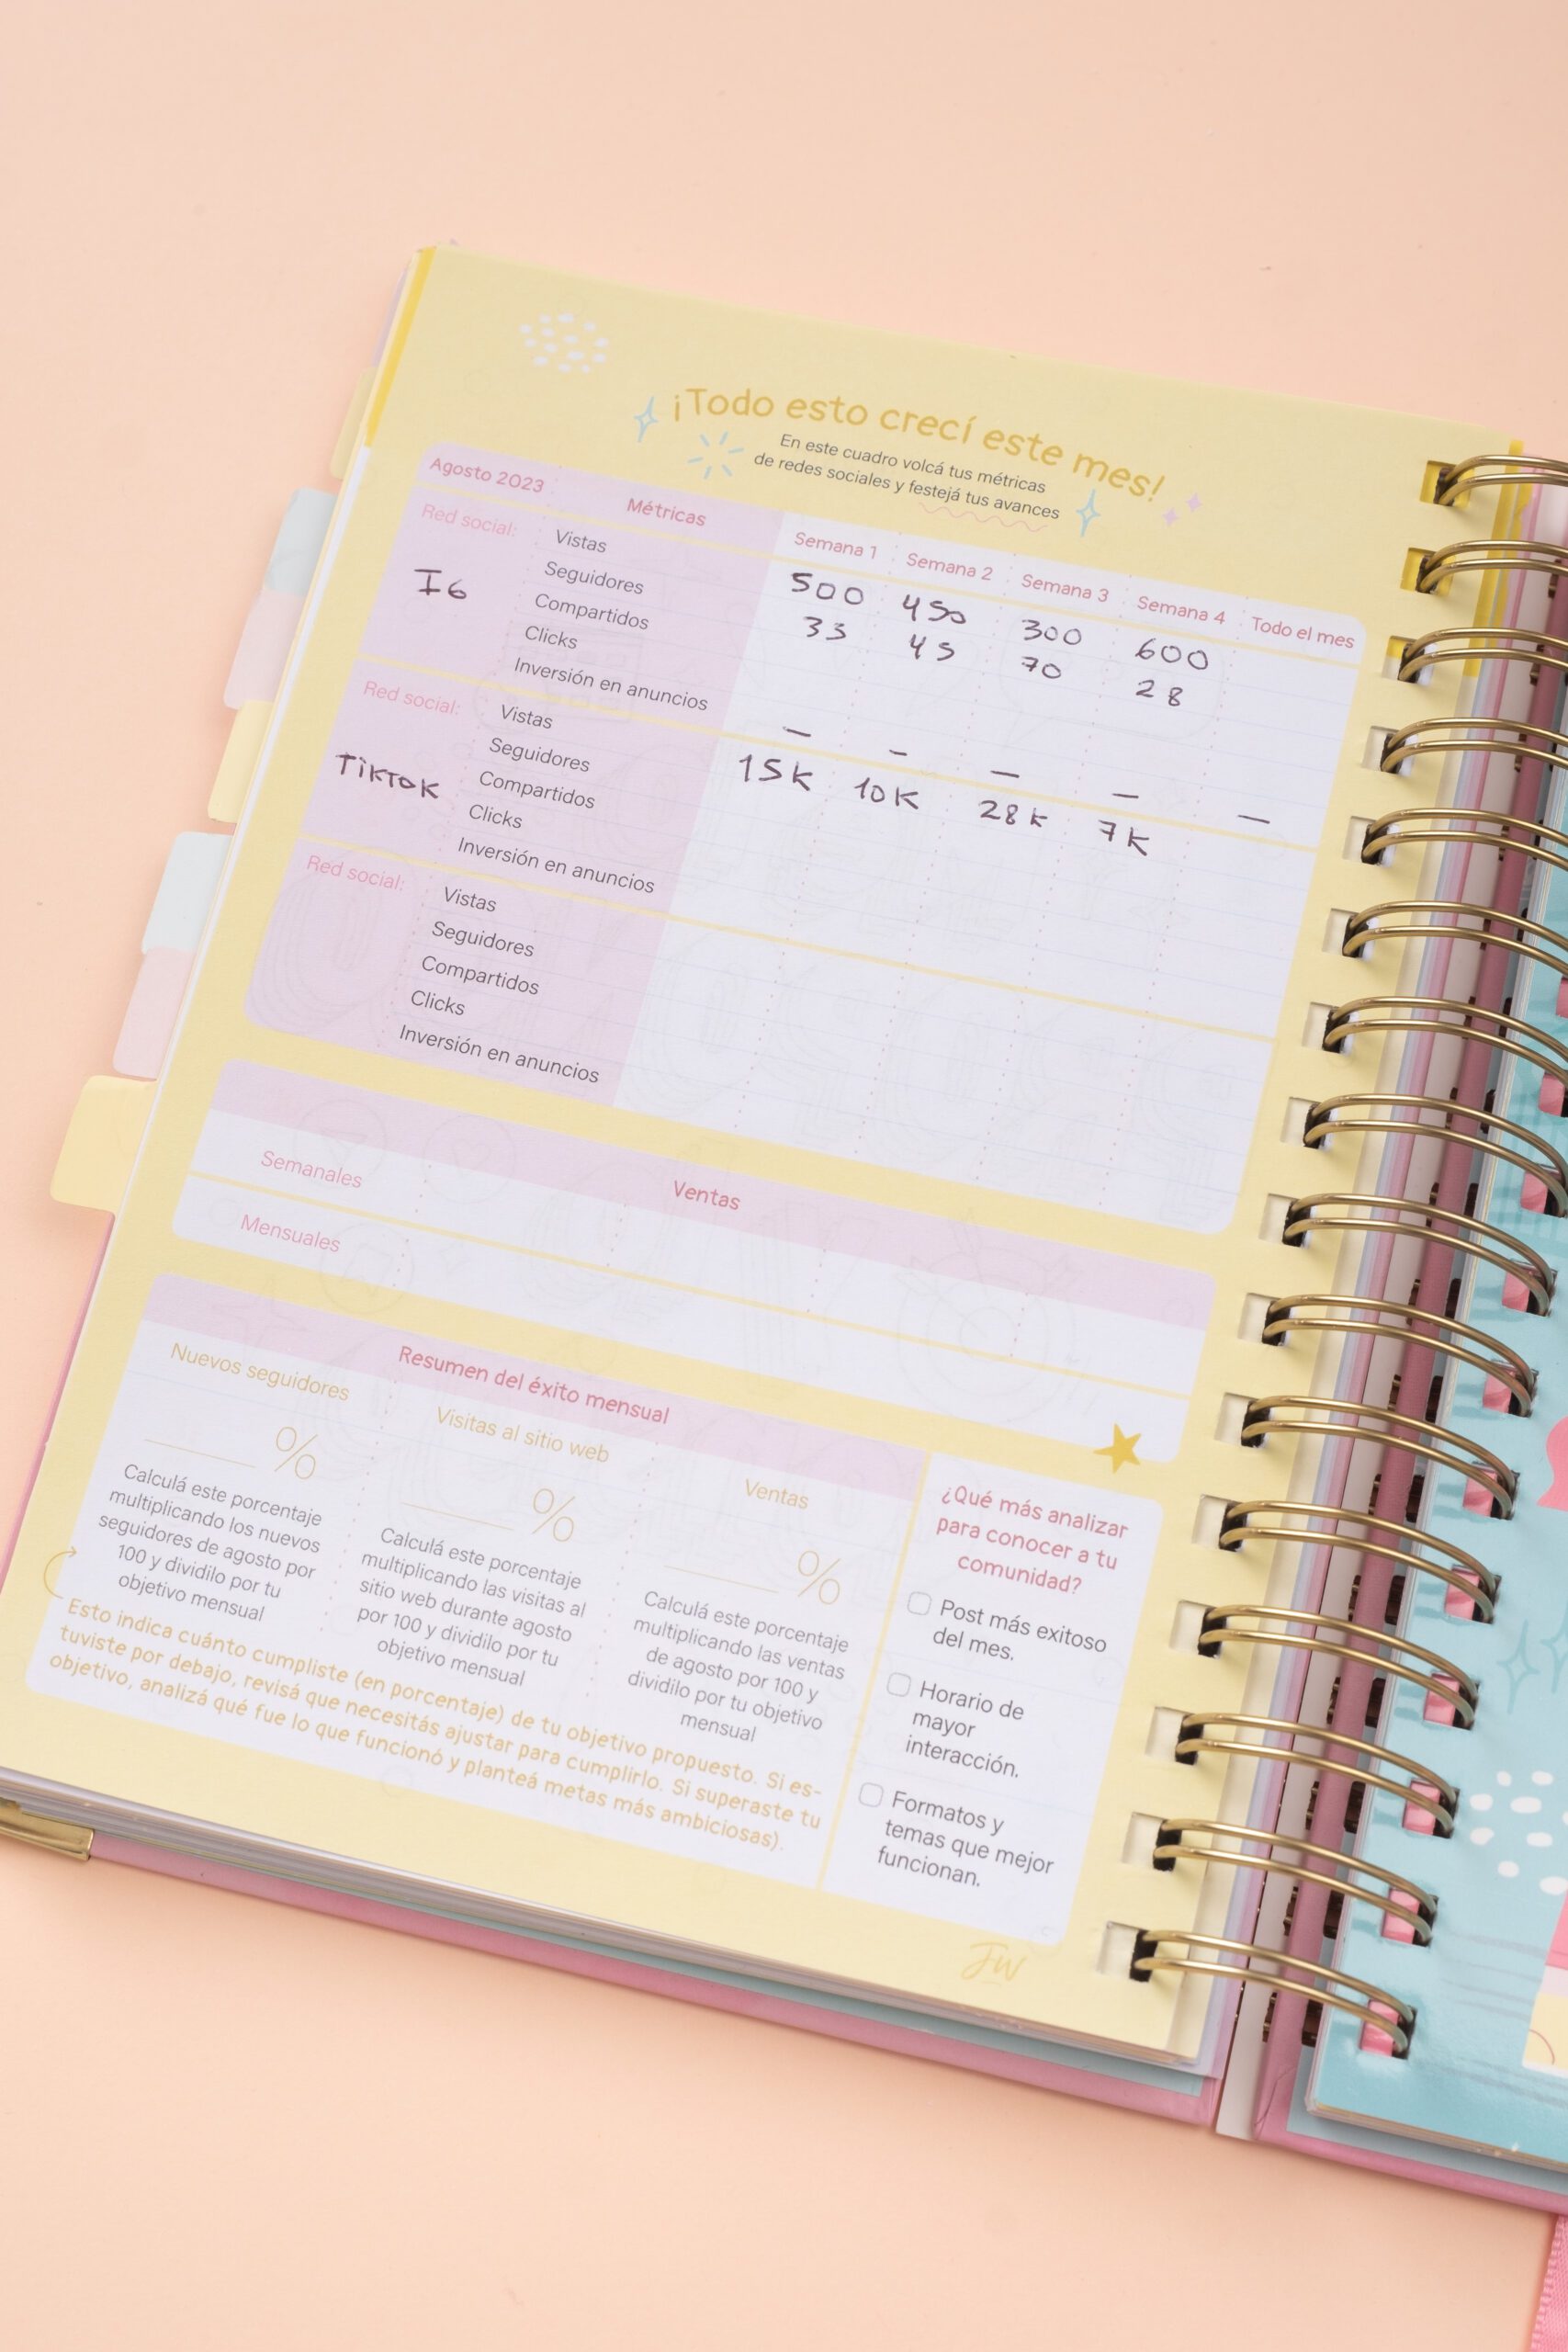 ¡Todo esto crecí este mes!
En este cuadro volcá tus métricas
de redes sociales y festejá tus avances
Agosto 2023 Métricas Semana 1 Semana 2 Semana 3 Semana 4 Todo el mes
Red social: IG
Vistas 500 450 300 600
Seguidores 33 45 70 28
Compartidos
Clicks
Inversión en anuncios – – – – –
Red social: TikTok
Vistas 15K 10K 28K 7K
Seguidores
Compartidos
Clicks
Inversión en anuncios
Red social:
Vistas
Seguidores
Compartidos
Clicks
Inversión en anuncios
Ventas
Semanales
Mensuales
Resumen del éxito mensual
Nuevos seguidores
%
Calculá este porcentaje
multiplicando los nuevos
seguidores de agosto por
100 y dividilo por tu
objetivo mensual
Visitas al sitio web
%
Calculá este porcentaje
multiplicando las visitas al
sitio web durante agosto
por 100 y dividilo por tu
objetivo mensual
Ventas
%
Calculá este porcentaje
multiplicando las ventas
de agosto por 100 y
dividilo por tu objetivo
mensual
Esto indica cuánto cumpliste (en porcentaje) de tu objetivo propuesto. Si es-
tuviste por debajo, revisá que necesitás ajustar para cumplirlo. Si superaste tu
objetivo, analizá qué fue lo que funcionó y planteá metas más ambiciosas).
¿Qué más analizar
para conocer a tu
comunidad?
Post más exitoso
del mes.
Horario de
mayor
interacción.
Formatos y
temas que mejor
funcionan.
JW